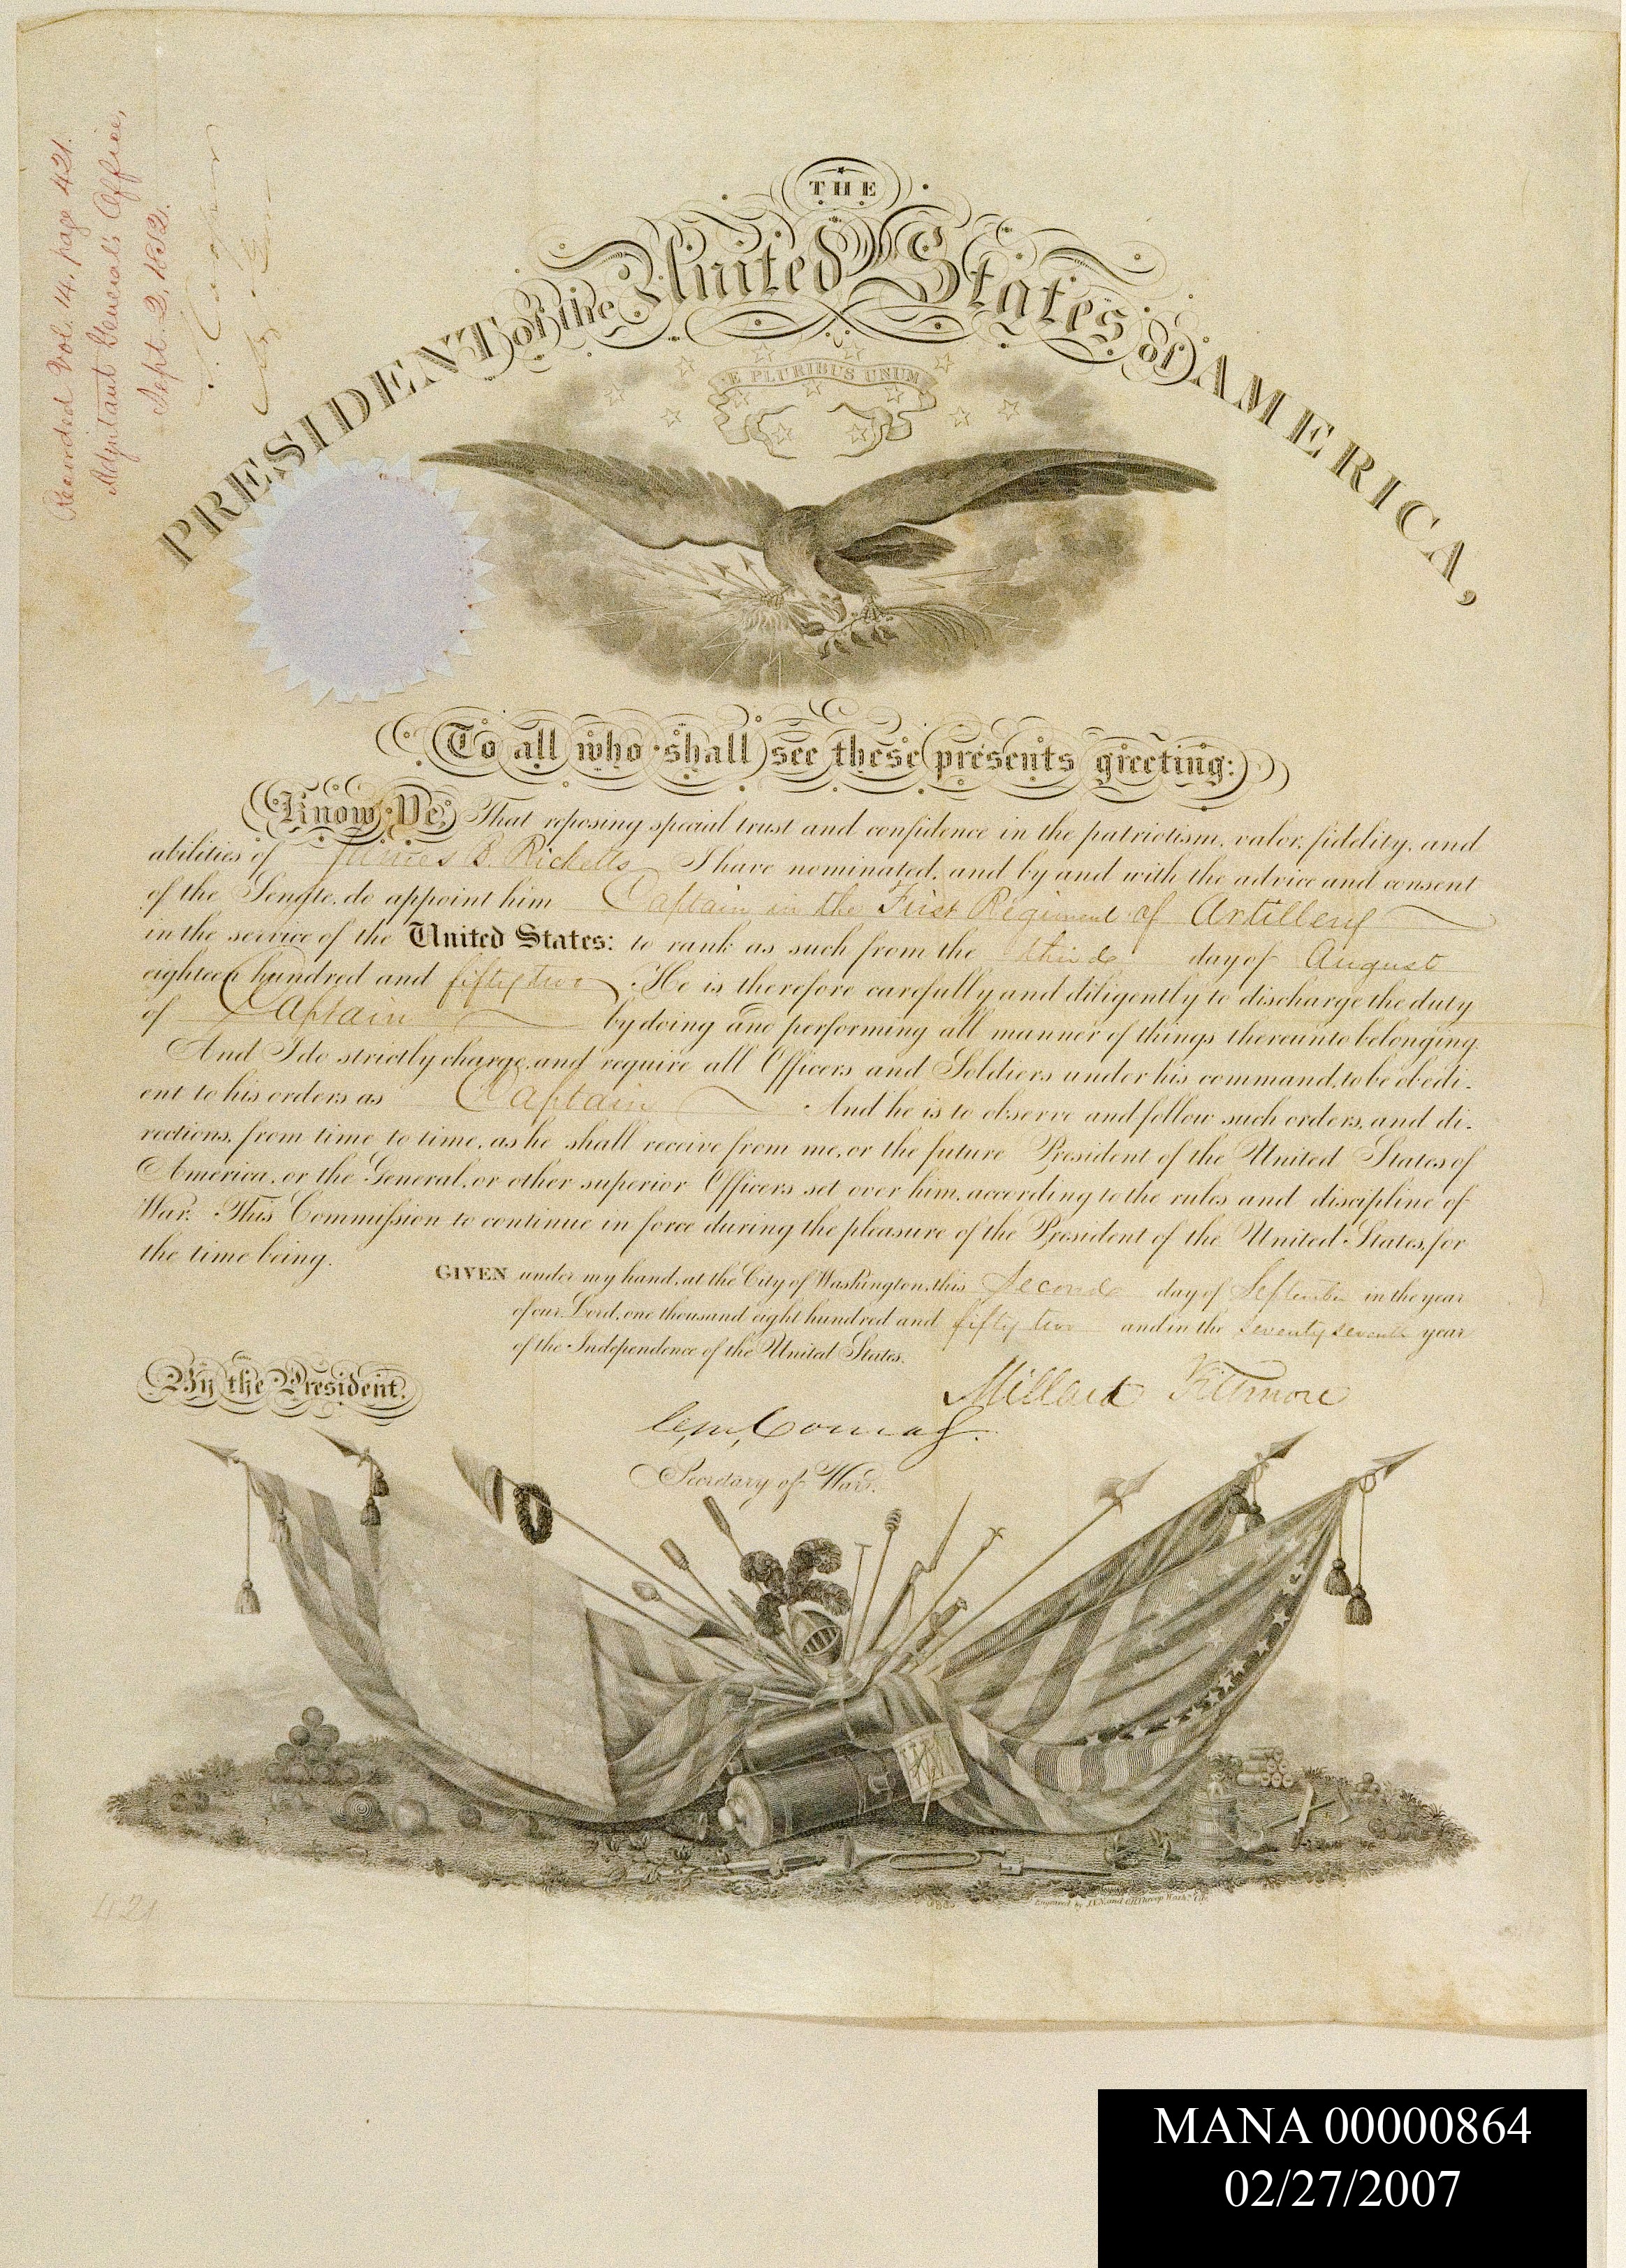 Recorded Vol. 14. page 421.
Adjutant General's Office,
Sept. 2, 1852.
THE
PRESIDENT of the United States of AMERICA,
E PLURIBUS UNUM
To all who shall see these presents greeting:
Know Ye, That reposing special trust and confidence in the patriotism, valor, fidelity, and
abilities of James B. Ricketts I have nominated, and by and with the advice and consent
of the Senate, do appoint him Captain in the First Regiment of Artillery
in the service of the United States: to rank as such from the third day of August
eighteen hundred and fifty two. He is therefore carefully and diligently to discharge the duty
of Captain by doing and performing all manner of things thereunto belonging.
And I do strictly charge, and require all Officers and Soldiers under his command, to be obedi-
ent to his orders as Captain And he is to observe and follow such orders, and di-
rections, from time to time, as he shall receive from me, or the future President of the United States of
America, or the General, or other superior Officers set over him, according to the rules and discipline of
War. This Commission to continue in force during the pleasure of the President of the United States, for
the time being.
GIVEN under my hand, at the City of Washington, this Second day of September in the year
of our Lord, one thousand eight hundred and fifty two and in the seventy seventh year
of the Independence of the United States.
By the President.
Millard Fillmore
C. M. Conrad.
Secretary of War.
421
MANA 00000864
02/27/2007